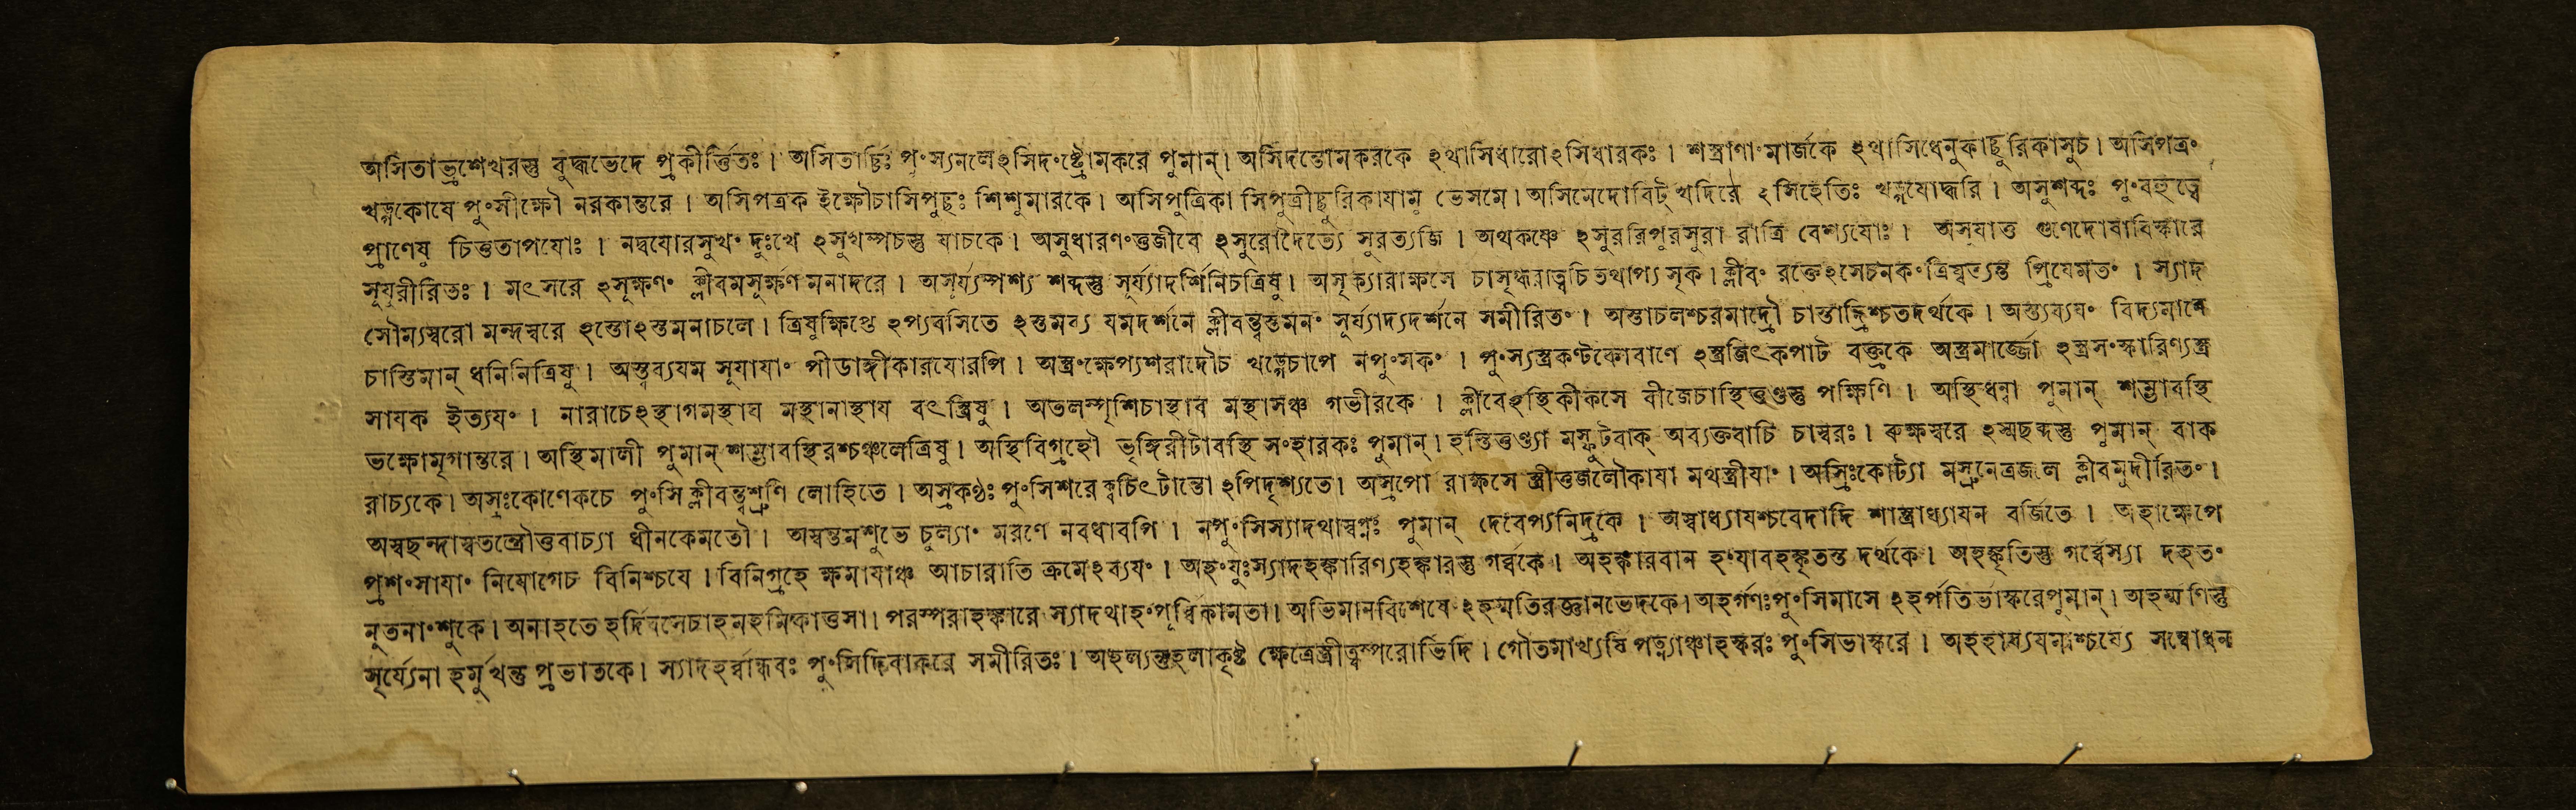 অসিতাভ্রশেখরস্তু বুদ্ধভেদে প্রকীর্ত্তিতঃ। অসিতার্চ্চিঃ পুংস্যনলেঽসিদংষ্ট্রোমকরে পুমান্। অসিদন্তোমকরকে ঽথাসিধারোঽসিধারকঃ। শস্ত্রাণাংমার্জকে ঽথাসিধেনুকাচ্ছুরিকাসুচ। অসিপত্রং
খড়্গকোষে পুংসীক্ষৌ নরকান্তরে। অসিপত্রক ইক্ষৌচাসিপুচ্ছঃ শিশুমারকে। অসিপুত্রিকা সিপুত্রীচ্ছুরিকাযাম ভেসমে। অসিমেদোবিট্খদিরে ঽসিহেতিঃ খড়্গযোদ্ধরি। অসুশব্দঃ পুংবহুত্বে
প্রাণেষু চিত্ততাপযোঃ। নদ্বযোরসুখং দুঃখে ঽসুখম্পচস্তু যাচকে। অসুধারণংত্তজীবে ঽসুরোদৈত্যে সুরত্যজি। অথকষ্ণে ঽসুররিপুরসুরা রাত্রি বেশ্যযোঃ। অসূযাত্ত গুণেদোষাবিষ্কারে
সূযুরীরিতঃ। মৎসরে ঽসূক্ষণং ক্লীবমসূর্ক্ষণ মনাদরে। অসূর্য্যম্পশ্য শব্দস্তু সূর্য্যাদর্শিনিচত্রিষু। অসৃক্যারাক্ষসে চাসৃগ্ধরাত্বচিতথাপ্য সৃক। ক্লীবং রক্তেঽসেচনকংত্রিষ্বত্যন্ত প্রিযেমতং। স্যাদ
সৌম্যস্বরো মন্দস্বরে ঽস্তোঽস্তমনাচলে। ত্রিষুক্ষিপ্তে ঽপ্যবসিতে ঽস্তমব্য যমদর্শনে ক্লীবন্ত্বস্তমনং সূর্য্যাদ্যদর্শনে সমীরিতং। অস্তাচলশ্চরমাদ্রৌ চাস্তাদ্রিশ্চতদর্থকে। অস্ত্যব্যযং বিদ্যমানে
চাস্তিমান্ ধনিনিত্রিষু। অস্ত্বব্যযম সূযাযাং পীডাঙ্গীকারযোরপি। অস্ত্রংক্ষেপ্যশরাদৌচ খড়্গেচাপে নপুংসকং। পুংস্যস্ত্রকণ্টকোবাণে ঽস্ত্রজিৎকপাট বক্তৃকে অস্ত্রমার্জ্জো ঽস্ত্রসংস্কারিণ্যস্ত্র
সাযক ইত্যযং। নারাচেঽস্থাগমস্থাঘ মস্থানাস্থায বৎস্ত্রিষু। অতলস্পৃশিচাস্থাব মস্থাসঞ্চ গভীরকে। ক্লীবেঽস্থিকীকসে বীজেচাস্থিতুণ্ডস্তু পক্ষিণি। অস্থিধন্বা পুমান্ শম্ভাবস্থি
ভক্ষোমৃগান্তরে। অস্থিমালী পুমান্ শম্ভাবস্থিরশ্চঞ্চলেত্রিষু। অস্থিবিগ্রহৌ ভৃঙ্গিরীটাবস্থি সংহারকঃ পুমান্। হস্তিতুণ্ড্যা মস্ফুটবাক্ অব্যক্তবাচি চাস্বরঃ। রুক্ষস্বরে ঽস্মচ্ছব্দস্তু পুমান্ বাক
রাচ্যকে। অস্রঃকোণেকচে পুংসি ক্লীবন্ত্বশ্রুণি লোহিতে। অস্রকণ্ঠঃ পুংসিশরে ক্বচিৎটান্তো ঽপিদৃশ্যতে। অস্রপো রাক্ষসে স্ত্রীতুজলৌকাযা মথস্ত্রীযাং। অস্রিঃকোট্যা মস্রুনেত্রজল ক্লীবমুদীরিতং।
অস্বচ্ছন্দাস্বতন্ত্রৌত্তবাচ্যা ধীনকেমতৌ। অস্বন্তমশুভে চুল্যাং মরণে নবধাবপি। নপুংসিস্যাদথাস্বপ্নঃ পুমান্ দেবেপ্যনিদ্রকে। অস্বাধ্যাযশ্চবেদাদি শাস্ত্রাধ্যাযন বর্জিতে। অহাক্ষেপে
প্রশংসাযাং নিযোগেচ বিনিশ্চযে। বিনিগ্রহে ক্ষমাযাঞ্চ আচারাতি ক্রমেঽব্যযং। অহংযুঃস্যাদহঙ্কারিণ্যহঙ্কারস্তু গর্ব্বকে। অহঙ্কারবান হংযাবহঙ্কৃতন্ত দর্থকে। অহঙ্কৃতিস্তু গর্ব্বেস্যা দহতং
নূতনাংশুকে। অনাহতে হর্দিবসেচাহমহমিকাত্তসা।। পরস্পরাহঙ্কারে স্যাদথাহংপূর্ব্বিকামতা। অভিমানবিশেষে ঽহম্মতিরজ্ঞানভেদকে। অহর্গণঃপুংসিমাসে ঽহর্পতির্ভাস্করেপুমান্। অহর্ম্মণিস্তু
সূর্য্যেনা হর্মুখন্তু প্রভাতকে। স্যাদহর্ব্বান্ধবঃ পুংসিদিবাকরে সমীরিতঃ। অহল্যন্ত্বহলাকৃষ্ট ক্ষেত্রেস্ত্রীত্বপ্সরোভিদি। গৌতমাখ্যর্ষি পত্ন্যাঞ্চাহস্করঃ পুংসিভাস্করে। অহহাব্যযমাশ্চর্য্যে সম্বোধন